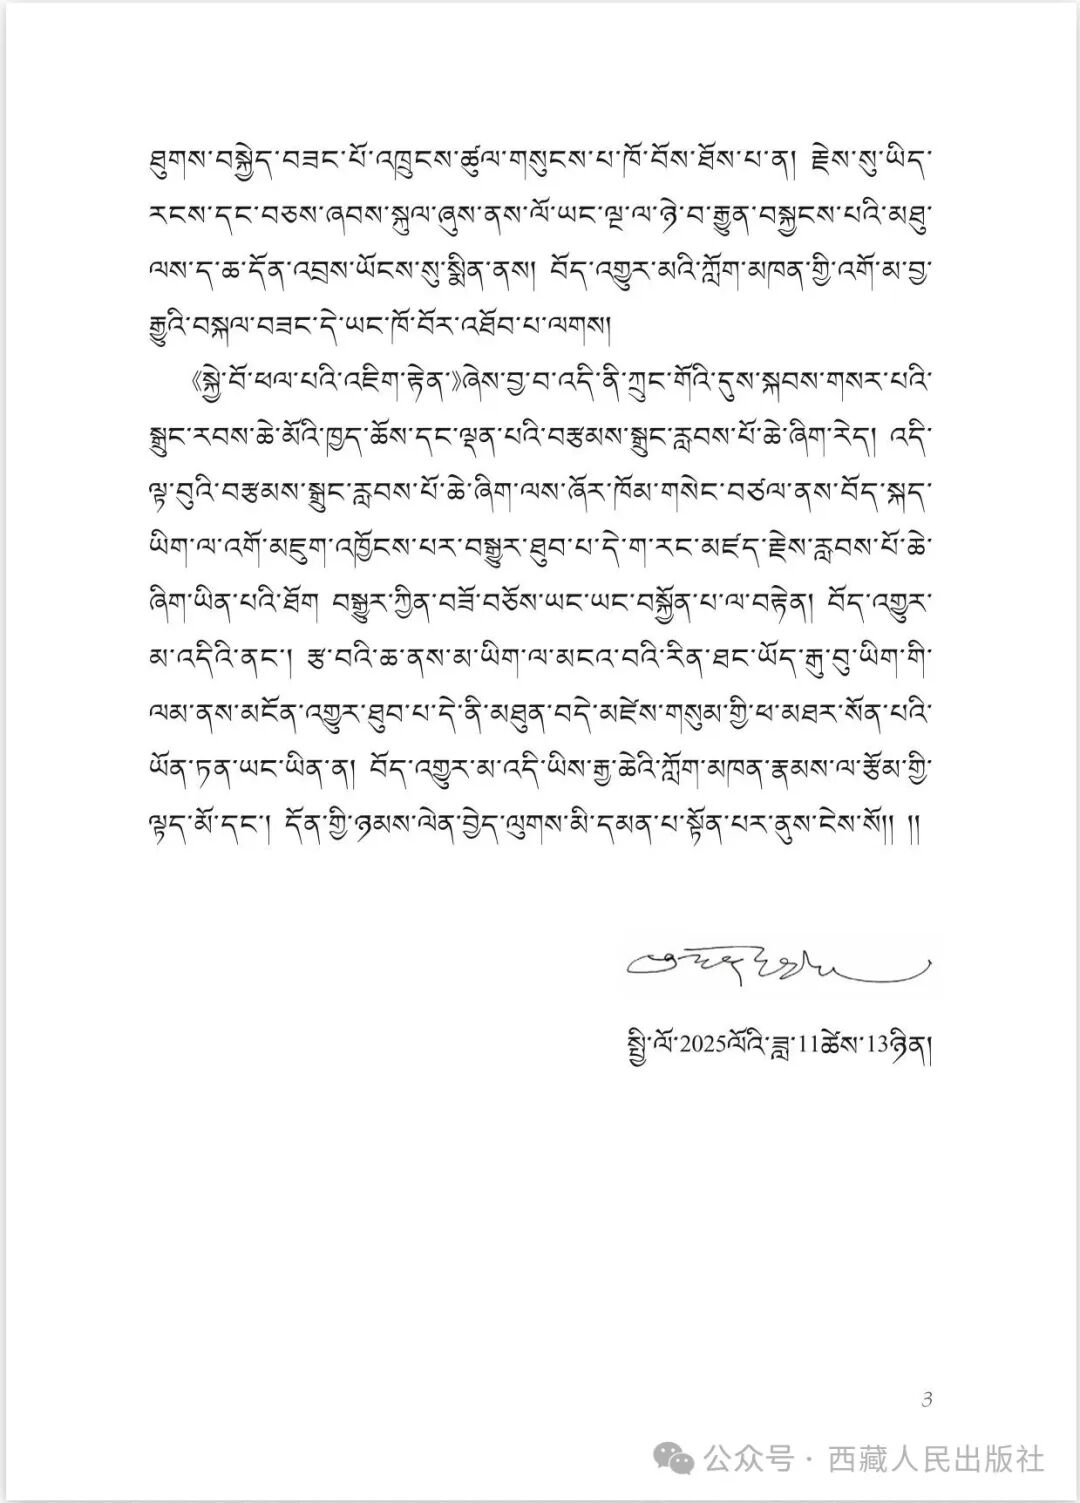 ཐུགས་བསྐྱེད་བཟང་པོ་འཁྲུངས་ཚུལ་གསུངས་པ་ཁོ་བོས་ཐོས་པ་ན། རྗེས་སུ་ཡིད་
རངས་དང་བཅས་ཞབས་སྐུལ་ཞུས་ནས་ལོ་ཡང་ལྔ་ལ་ཉེ་བ་རྒྱུན་བསྐྱངས་པའི་མཐུ་
ལས་ད་ཆ་དོན་འབྲས་ཡོངས་སུ་སྨིན་ནས། བོད་འགྱུར་མའི་ཀློག་མཁན་གྱི་འགོ་མ་བྱ་
རྒྱུའི་བསྐལ་བཟང་དེ་ཡང་ཁོ་བོར་འཐོབ་པ་ལགས།
《སྐྱེ་བོ་ཕལ་པའི་འཇིག་རྟེན་》ཞེས་བྱ་བ་འདི་ནི་ཀྲུང་གོའི་དུས་སྐབས་གསར་པའི་
སྒྲུང་རབས་ཆེ་མོའི་ཁྱད་ཆོས་དང་ལྡན་པའི་བརྩམས་སྒྲུང་རླབས་པོ་ཆེ་ཞིག་རེད། འདི་
ལྟ་བུའི་བརྩམས་སྒྲུང་རླབས་པོ་ཆེ་ཞིག་ལས་ཞོར་ཁོམ་གསེང་བཙལ་ནས་བོད་སྐད་
ཡིག་ལ་འགོ་མཇུག་འཁྱོངས་པར་བསྒྱུར་ཐུབ་པ་དེ་ག་རང་མཛད་རྗེས་རླབས་པོ་ཆེ་
ཞིག་ཡིན་པའི་ཐོག བསྒྱུར་ཀྱིན་བཟོ་བཅོས་ཡང་ཡང་བསྐྱོན་པ་ལ་བརྟེན། བོད་འགྱུར་
མ་འདིའི་ནང་། རྩ་བའི་ཆ་ནས་མ་ཡིག་ལ་མངའ་བའི་རིན་ཐང་ཡོད་རྒུ་བུ་ཡིག་གི་
ལམ་ནས་མངོན་འགྱུར་ཐུབ་པ་དེ་ནི་མཐུན་བདེ་མཛེས་གསུམ་གྱི་ཕ་མཐར་སོན་པའི་
ཡོན་ཏན་ཡང་ཡིན་ན། བོད་འགྱུར་མ་འདི་ཡིས་རྒྱ་ཆེའི་ཀློག་མཁན་རྣམས་ལ་རྩོམ་གྱི་
ལྟད་མོ་དང་། དོན་གྱི་ཉམས་ལེན་བྱེད་ལུགས་མི་དམན་པ་སྟོན་པར་ནུས་ངེས་སོ།། །།
སྤྱི་ལོ་2025ལོའི་ཟླ་11ཚེས་13ཉིན།
3
公众号·西藏人民出版社